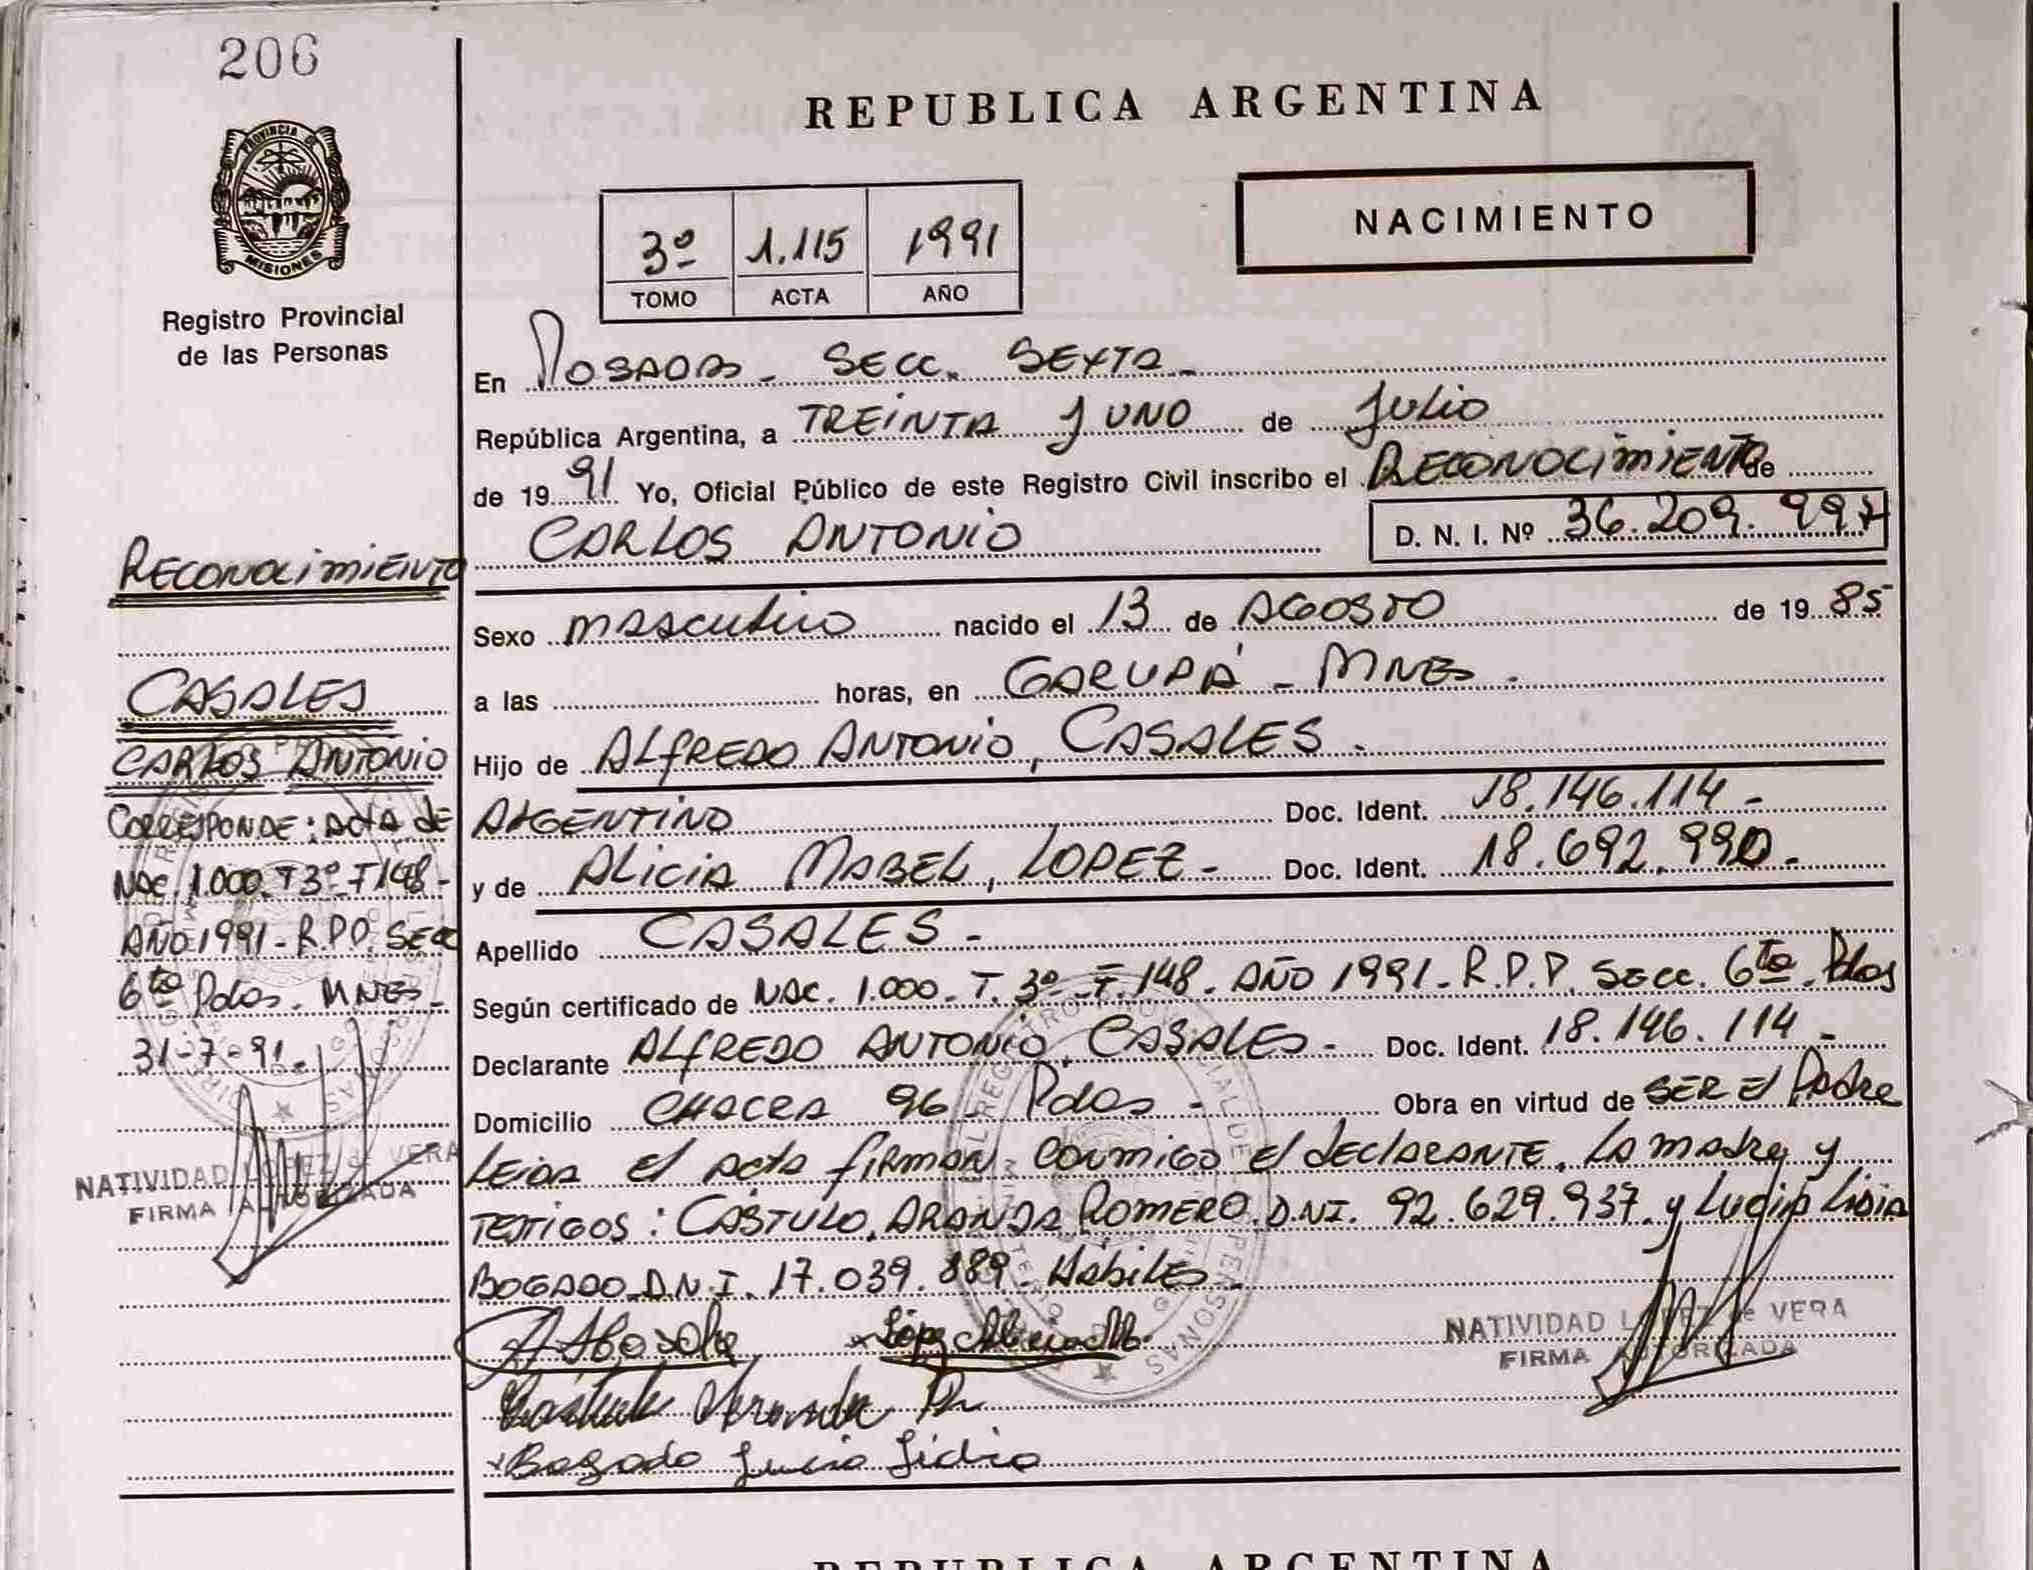 206
REPUBLICA ARGENTINA
NACIMIENTO
PROVINCIA DE
MISIONES
Registro Provincial
de las Personas
3º 1.115 1991
TOMO ACTA AÑO
En Posadas - Secc. Sexta -
República Argentina, a TREINTA y UNO de Julio
de 1991 Yo, Oficial Público de este Registro Civil inscribo el RECONOCIMIENTO de
CARLOS ANTONIO D. N. I. Nº 36.209.997
Sexo masculino nacido el 13 de AGOSTO de 1985
a las horas, en GARUPÁ - MNES -
Hijo de ALFREDO ANTONIO, CASALES -
ARGENTINO Doc. Ident. 18.146.114 -
y de ALICIA MABEL, LOPEZ - Doc. Ident. 18.692.990 -
Apellido CASALES -
Según certificado de NAC. 1.000 - T. 3º - F. 148 - AÑO 1991 - R.P.P. Secc. 6ta - Pdas
Declarante ALFREDO ANTONIO, CASALES - Doc. Ident. 18.146.114 -
Domicilio CHACRA 96 - Pdas - Obra en virtud de SER El Padre
Leida el acta firman conmigo el declarante, la madre y
TESTIGOS: CÁSTULO, ARANDA ROMERO D.N.I. 92.629.937 y Lucia Lidia
BOGADO D.N.I. 17.039.889 - Hábiles -
López Alicia M.
Bogado Lucia Lidia
NATIVIDAD LOPEZ de VERA
FIRMA AUTORIZADA
RECONOCIMIENTO
CASALES
CARLOS ANTONIO
CORRESPONDE: ACTA DE
NAC. 1.000 - T 3º - F 148 -
AÑO 1991 - R.P.P. Secc
6ta Pdas. MNES -
31-7-91.
NATIVIDAD LOPEZ de VERA
FIRMA AUTORIZADA
REPUBLICA ARGENTINA